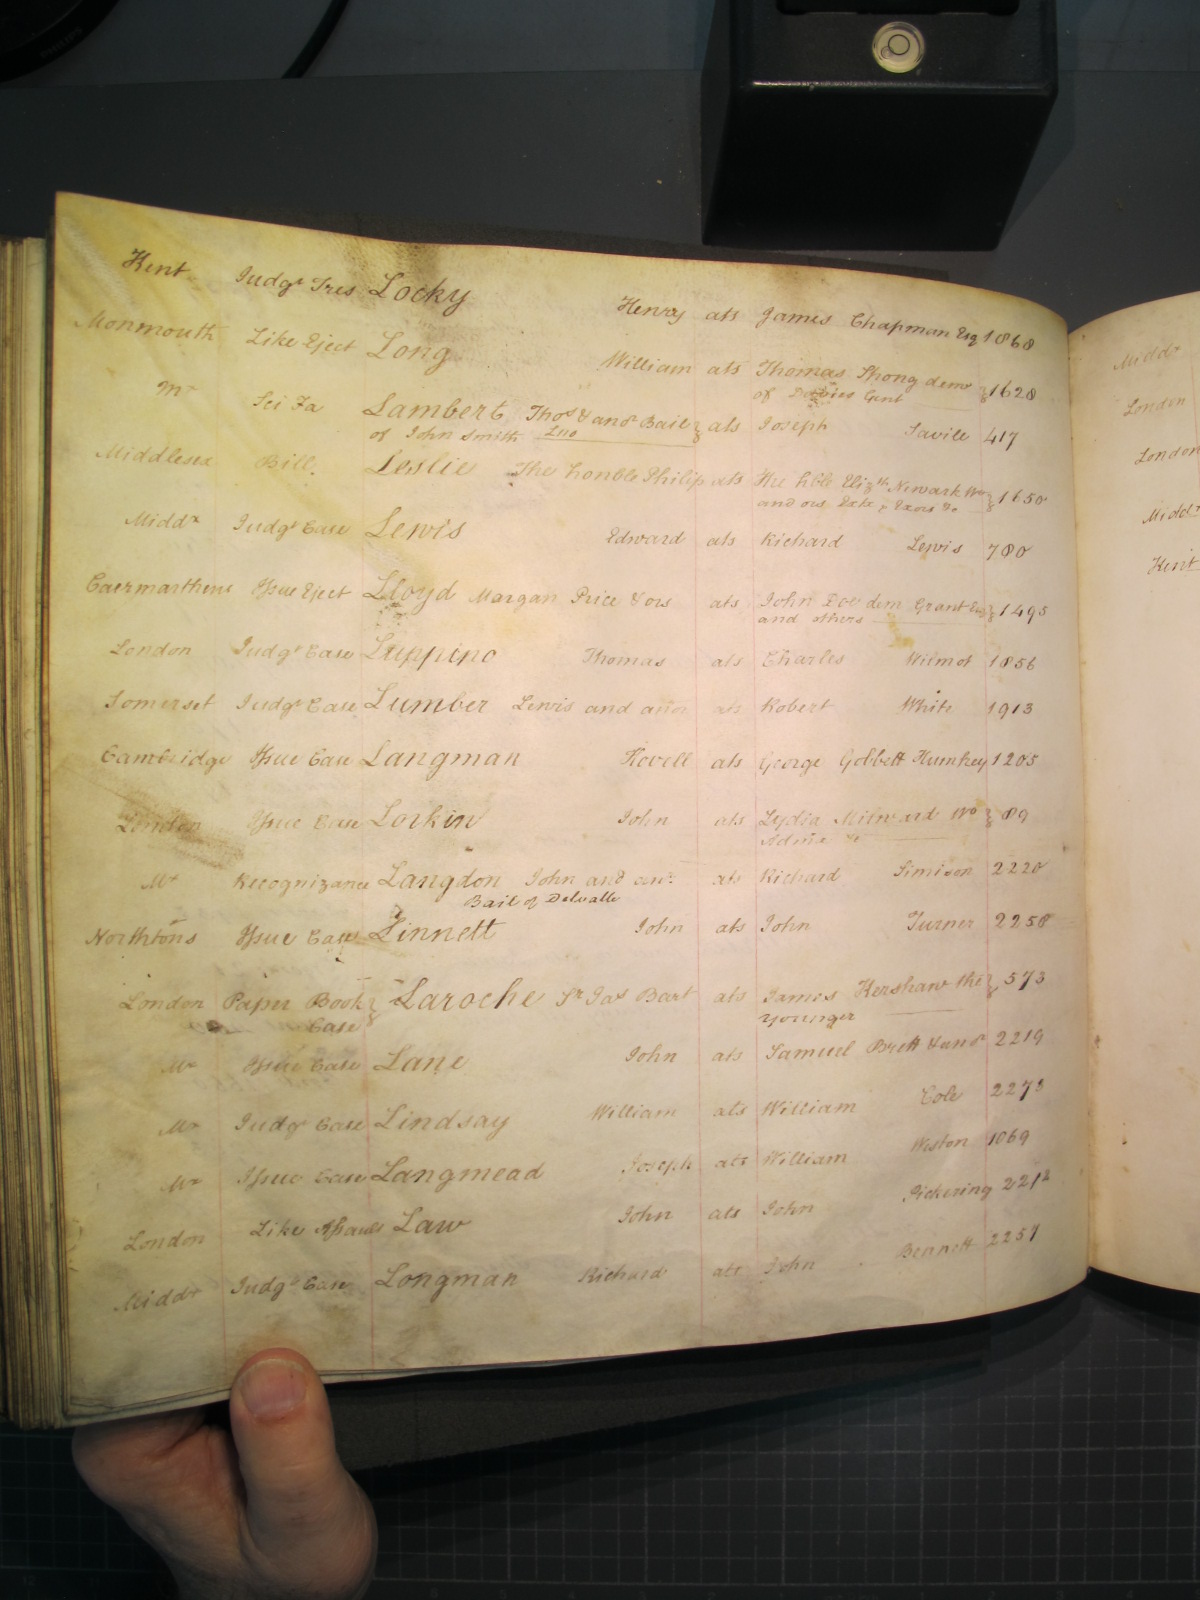 Kent Judgt Tres Locky Henry ats James Chapman Esq 1868
Monmouth Like Eject Long William ats Thomas Strong demr 1628
of Gent
Mx Sci Fa Lambert Thos & anor Bail ats Joseph Savile 417
of John Smith
Middlesex Bill Leslie The honble Philip ats The hble Elizth Newark Wo 1650
and ors
Middx Judgt Case Lewis Edward ats Richard Lewis 780
Caermarthens Issue Eject Lloyd Morgan Price & ors ats John Doe dem Grant Esq 1495
and others
London Judgt Case Luppino Thomas ats Charles Wilmot 1856
Somerset Judgt Case Lumber Lewis and anor ats Robert White 1913
Cambridge Issue Case Langman Hovell ats George Gobbett Humfrey 1205
London Issue Case Lorkin John ats Lydia Milward Wo 89
Mx Recognizance Langdon John and anr ats Richard Simison 2220
Bail of Delvalle
Northtons Issue Case Linnett John ats John Turner 2258
London Paper Book Laroche Sr Jas Bart ats James Kershaw the 573
Case younger
Mx Issue Case Lane John ats Samuel Brett & anor 2219
Mx Judgt Case Lindsay William ats William Cole 2273
Mx Issue Case Langmead Joseph ats William Weston 1069
London Like Law John ats John Pickering 2212
Middx Judgt Case Longman Richard ats John Bennett 2251
Middx
London
London
Middx
Kent